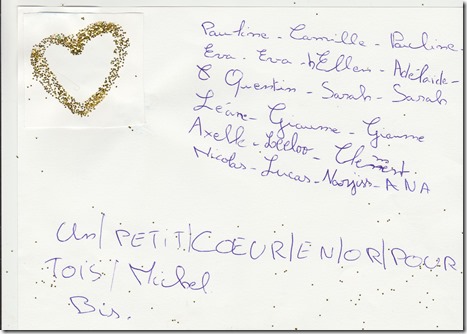 Pauline - Camille - Pauline
Eva - Eva - Ellen - Adélaïde -
& Quentin - Sarah - Sarah
Léane -
Axelle - Clément.
Nicolas - Lucas - Narjiss - ANA
Un/PETIT/CŒUR/EN/OR/POUR
TOIS/ Michel
Bis.